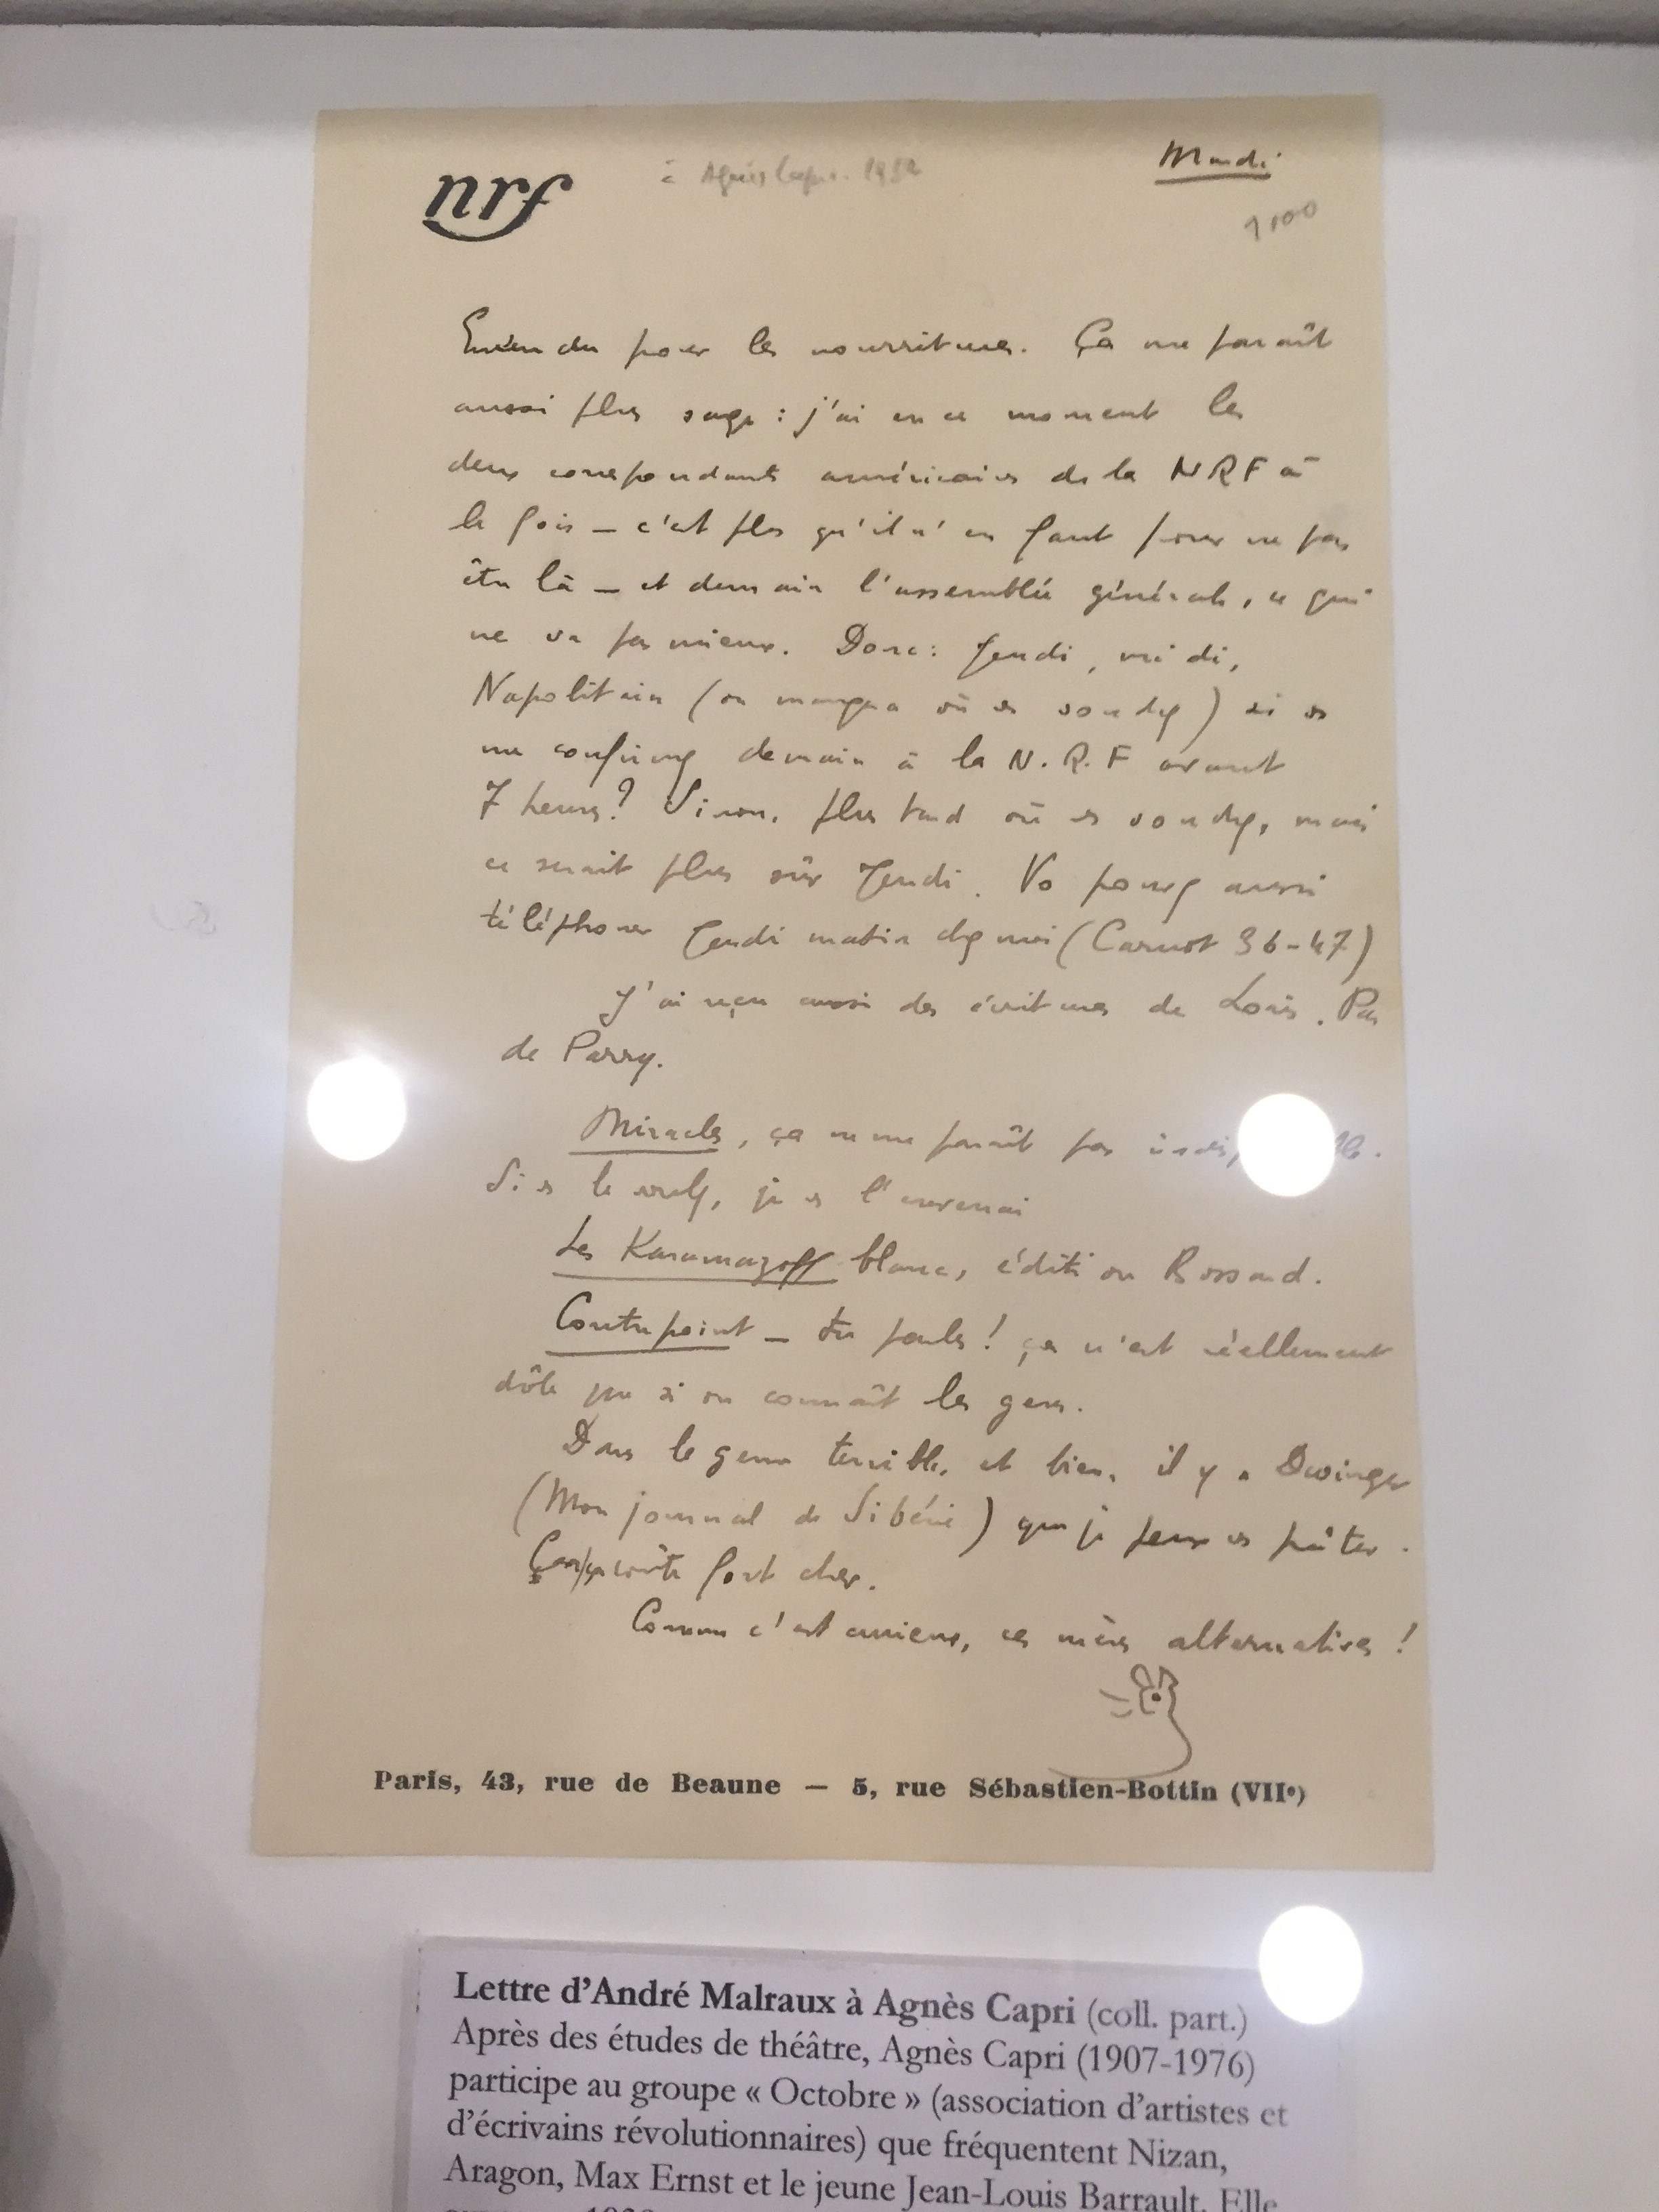 nrf
à Agnès Capri. 1932
Mardi
1100
Entendu pour les nourritures. Ça me paraît
aussi plus sage : j'ai en ce moment les
deux correspondants américains de la NRF à
la fois – c'est plus qu'il n'en faut pour ne pas
être là – et demain l'assemblée générale, ce qui
ne va pas mieux. Donc : Jeudi, midi,
Napolitain (on mangera où vs voudrez) si vs
me confirmez demain à la N.R.F avant
7 heures ? Sinon, plus tard où vs voudrez, mais
ce serait plus sûr Jeudi. Vs pouvez aussi
téléphoner Jeudi matin chez moi (Carnot 36-47)
J'ai reçu aussi des écritures de Loris. Pas
de Parry.
Miracles, ça ne me paraît pas
Si vs le voulez, je vs l'enverrai
Les Karamazoff blanc, édition Bossard.
Contrepoint – tu parles ! ça n'est réellement
drôle que si on connaît les gens.
Dans le genre terrible, et bien, il y a Dwinger
(Mon journal de Sibérie) que je peux vs prêter.
coûte fort cher.
Comme c'est curieux, ces alternatives !
Paris, 43, rue de Beaune – 5, rue Sébastien-Bottin (VIIe)
Lettre d'André Malraux à Agnès Capri (coll. part.)
Après des études de théâtre, Agnès Capri (1907-1976)
participe au groupe « Octobre » (association d'artistes et
d'écrivains révolutionnaires) que fréquentent Nizan,
Aragon, Max Ernst et le jeune Jean-Louis Barrault. Elle